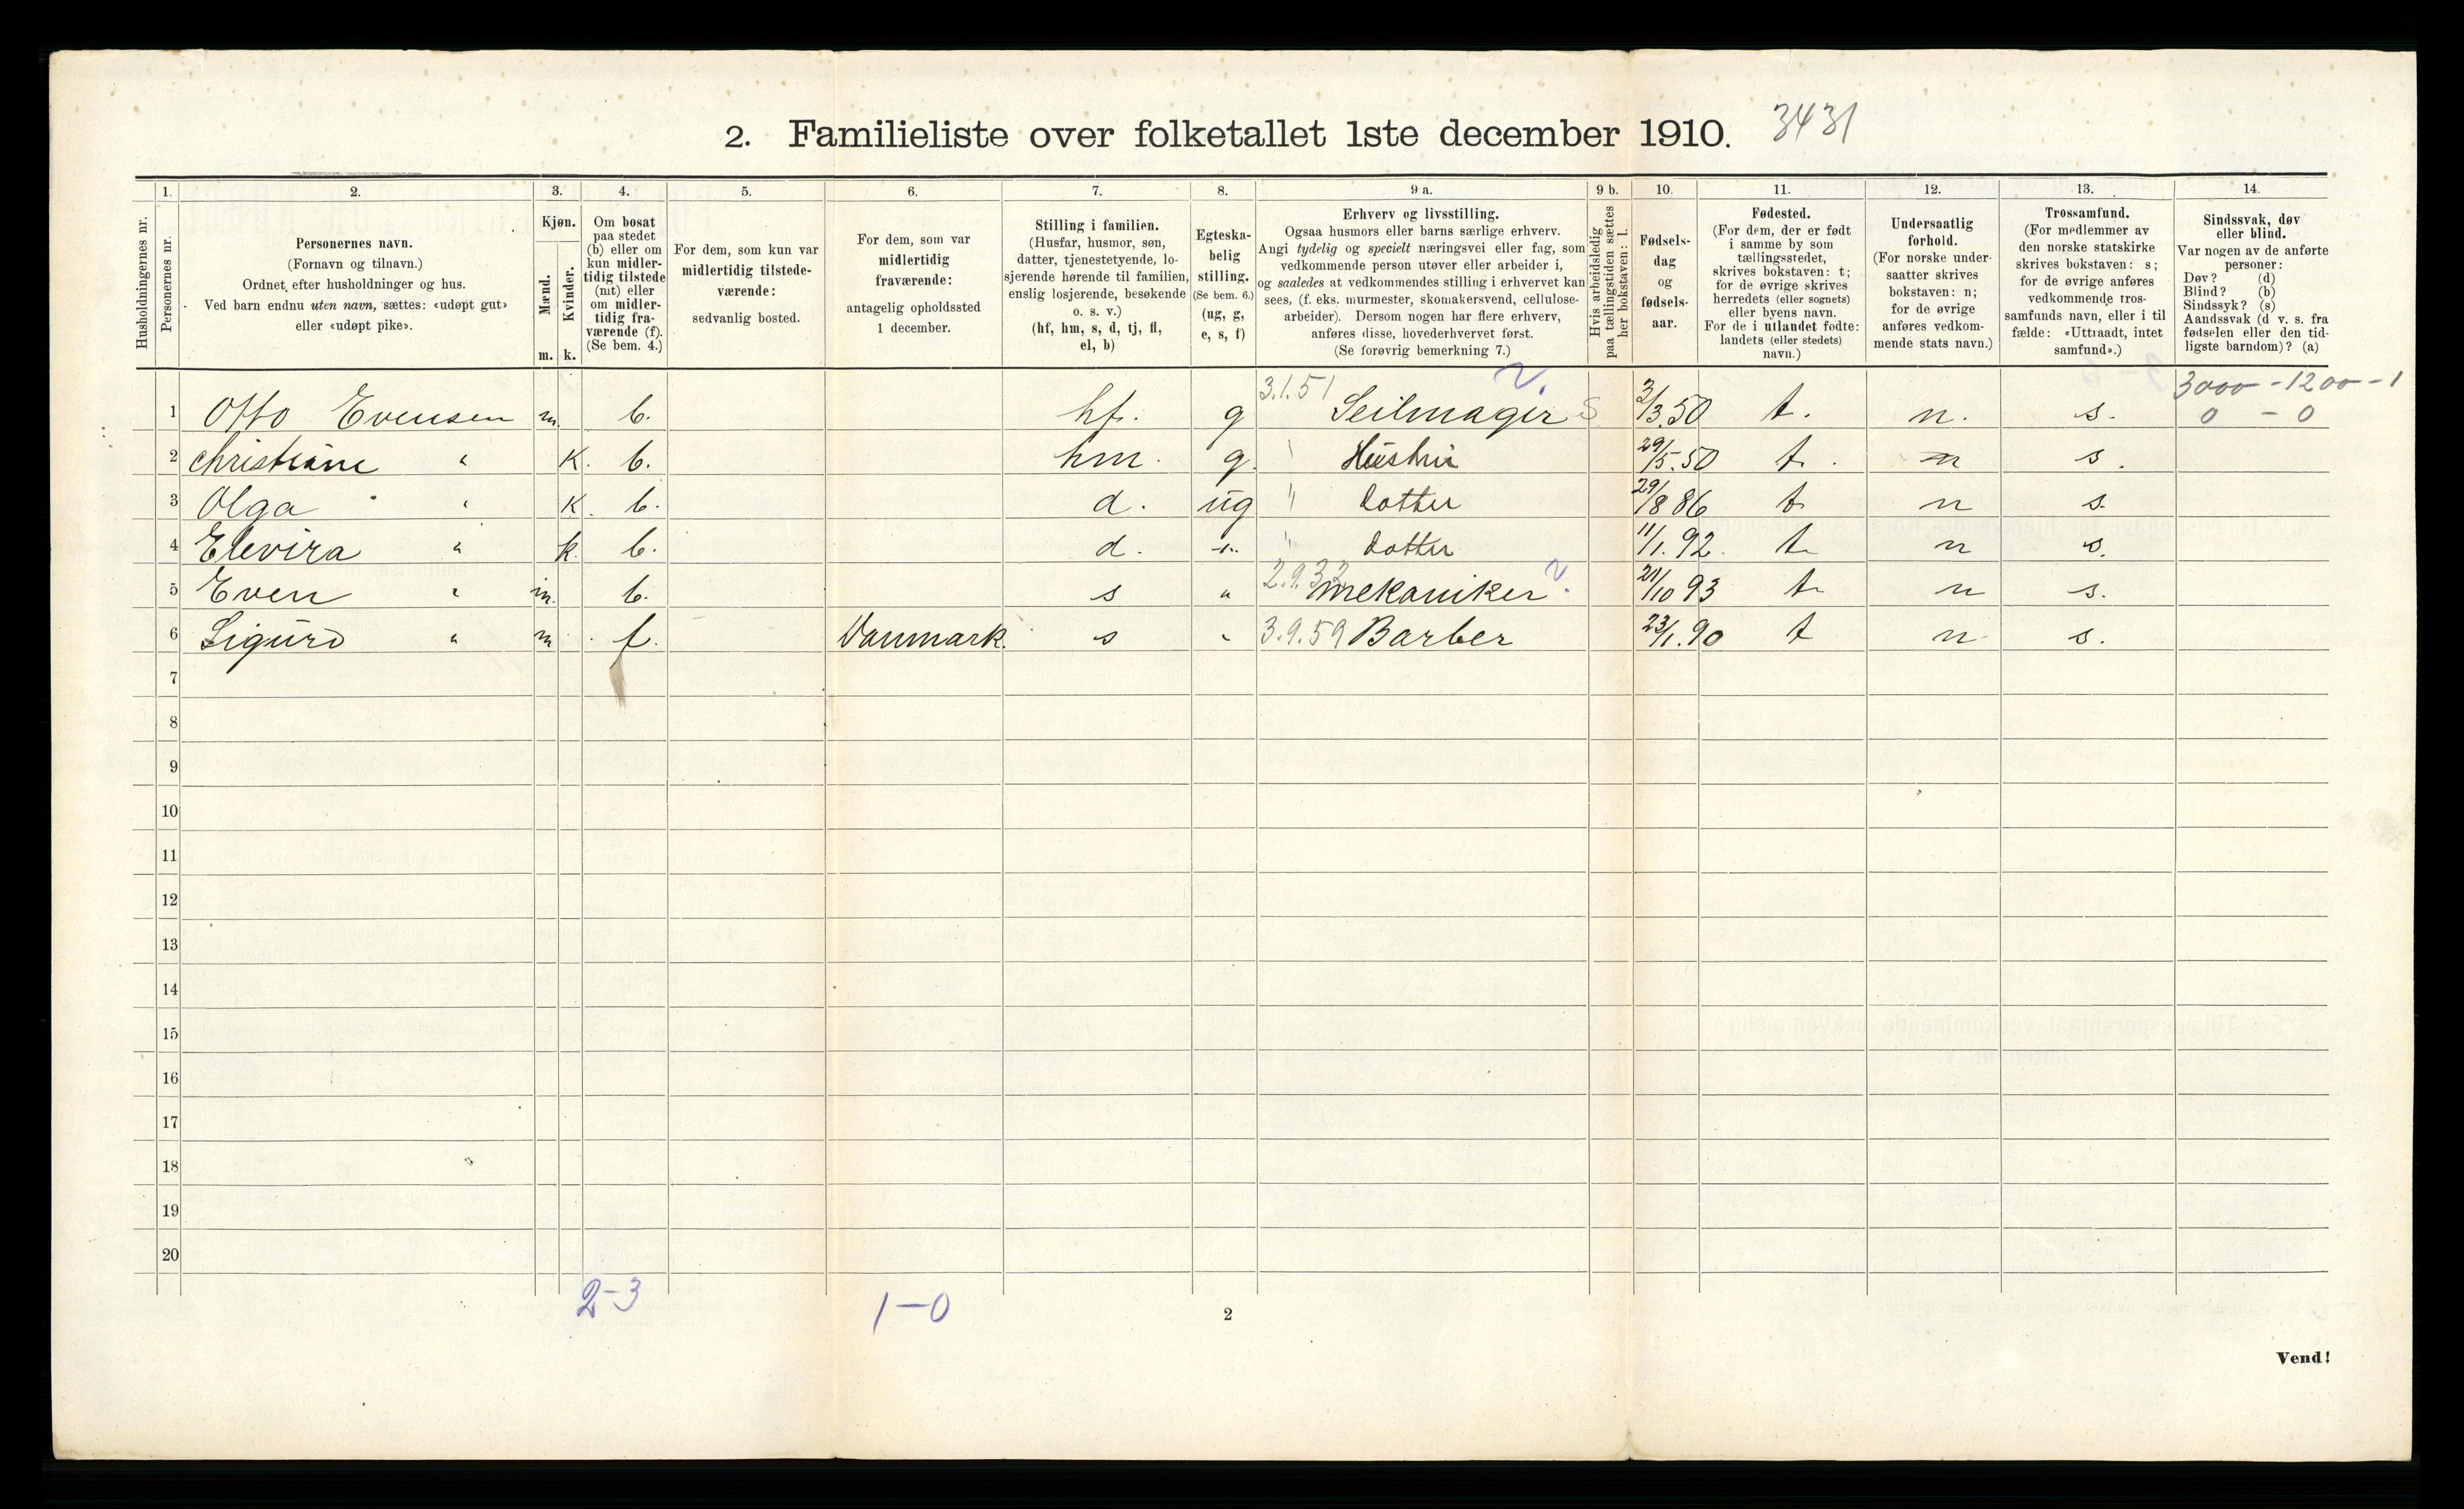 2. Familieliste over folketallet 1ste december 1910. 3431
Husholdningernes nr.
1.
Personernes nr.
2.
Personernes navn.
(Fornavn og tilnavn.)
Ordnet efter husholdninger og hus.
Ved barn endnu uten navn, sættes: «udøpt gut»
eller «udøpt pike».
3.
Kjøn.
Mænd.
Kvinder.
m. k.
4.
Om bosat
paa stedet
(b) eller om
kun midler-
tidig tilstede
(mt) eller
om midler-
tidig fra-
værende (f).
(Se bem. 4.)
5.
For dem, som kun var
midlertidig tilstede-
værende:
sedvanlig bosted.
6.
For dem, som var
midlertidig
fraværende:
antagelig opholdssted
1 december.
7.
Stilling i familien.
(Husfar, husmor, søn,
datter, tjenestetyende, lo-
sjerende hørende til familien,
enslig losjerende, besøkende
o. s. v.)
(hf, hm, s, d, tj, fl,
el, b)
8.
Egteska-
belig
stilling.
(Se bem. 6.)
(ug, g,
e, s, f)
9 a.
Erhverv og livsstilling.
Ogsaa husmors eller barns særlige erhverv.
Angi tydelig og specielt næringsvei eller fag, som
vedkommende person utøver eller arbeider i,
og saaledes at vedkommendes stilling i erhvervet kan
sees, (f. eks. murmester, skomakersvend, cellulose-
arbeider). Dersom nogen har flere erhverv,
anføres disse, hovederhvervet først.
(Se forøvrig bemerkning 7.)
9 b.
Hvis arbeidsledig
paa tællingstiden sættes
her bokstaven: l.
10.
Fødsels-
dag
og
fødsels-
aar.
11.
Fødested.
(For dem, der er født
i samme by som
tællingsstedet,
skrives bokstaven: t;
for de øvrige skrives
herredets (eller sognets)
eller byens navn.
For de i utlandet fødte:
landets (eller stedets)
navn.)
12.
Undersaatlig
forhold.
(For norske under-
saatter skrives
bokstaven: n;
for de øvrige
anføres vedkom-
mende stats navn.)
13.
Trossamfund.
(For medlemmer av
den norske statskirke
skrives bokstaven: s;
for de øvrige anføres
vedkommende tros-
samfunds navn, eller i til
fælde: «Uttraadt, intet
samfund».)
14.
Sindssvak, døv
eller blind.
Var nogen av de anførte
personer:
Døv? (d)
Blind? (b)
Sindssyk? (s)
Aandssvak (d v. s. fra
fødselen eller den tid-
ligste barndom)? (a)
3.1.51 3000 - 1200 - 1
1 Otto Evensen m. b. hf. g Seilmager S 3/3.50 t. n. s. 0 - 0
2 Christiane " K. b. hm. g. " Hustru 29/5.50 t. n s.
3 Olga " K. b. d. ug " Dotter 29/8 86 t n s.
4 Elevira " k. b. d. " " Dotter 11/1.92. t n s.
5 Even " m. b. s " 2.9.32 Mekaniker 21/10 93 t n s.
6 Sigurd " m f. Danmark. s " 3.9.59 Barber 23/1.90 t n s.
7
8
9
10
11
12
13
14
15
16
17
18
19
20
2-3 1-0
2
Vend!